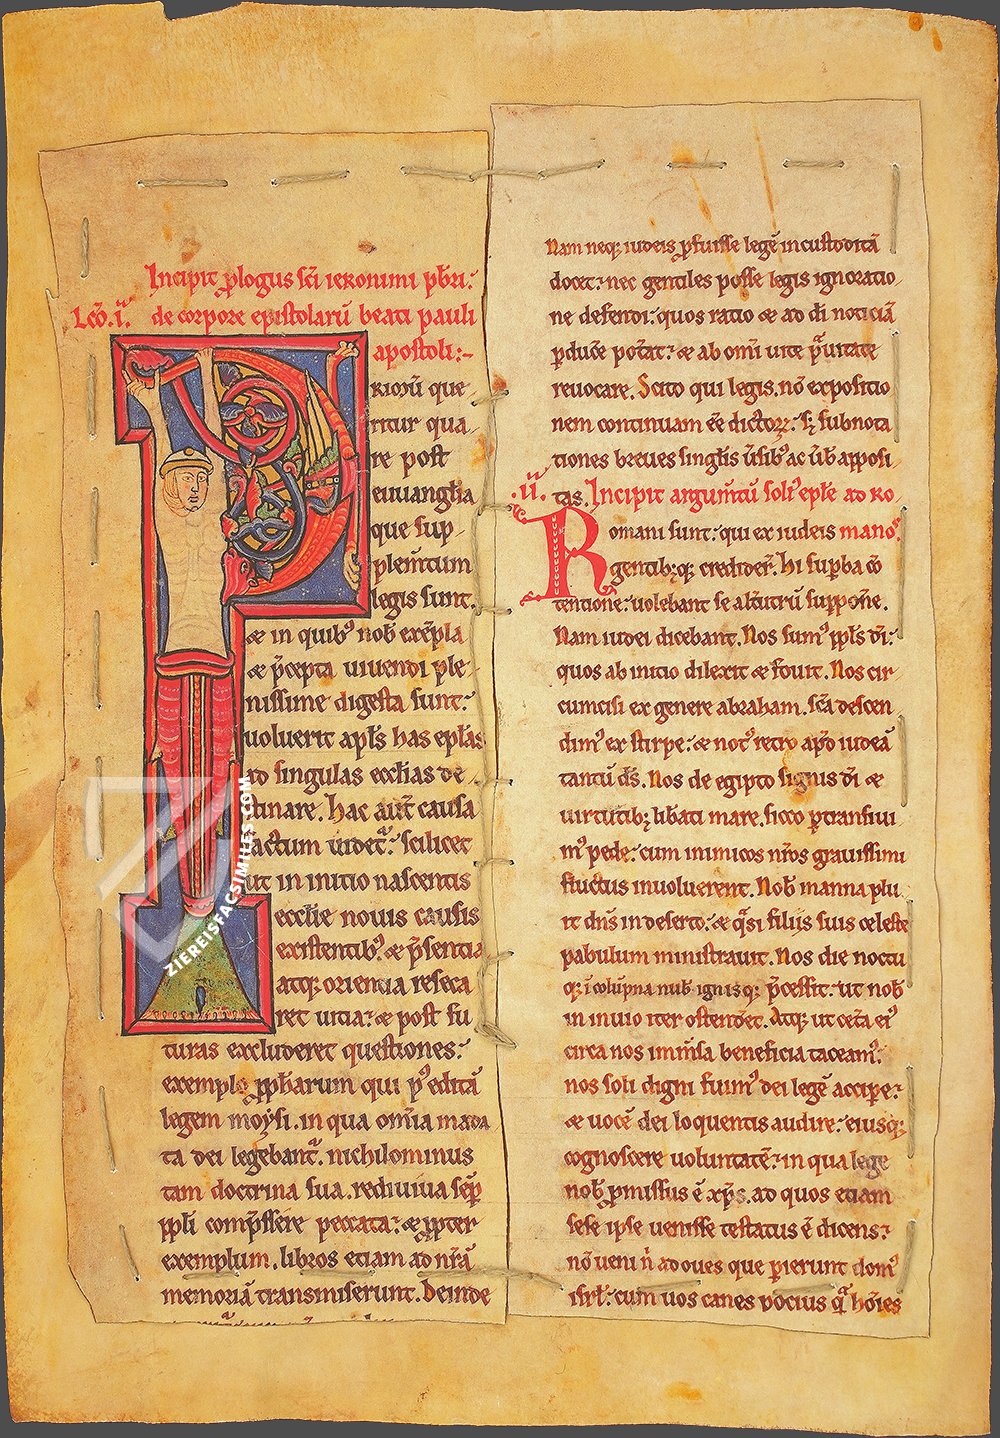 Incipit plogus sc̄i ieronimi pb̄ri:
Lc̄o.i.ͣ de corpore epistolarū beati pauli
apostoli:-
PRIOꝜū que
ritur qua-
re post
euuanglīa
que sup-
plem̄tum
legis sunt.
& in quibꝰ nob̄ exēpla
& p̄cepta uiuendi ple-
nissime digesta sunt:
uoluerit apl̄s has epl̄as
ad singulas eccl̄ias de-
stinare. hac aūt causa
factum uidet᷑: scilicet
ut in initio nascentis
eccl̄ie nouis causis
existentibꝰ. & p̄sentia
atq; orientia reseca
ret uitia: & post fu
turas excluderet questiones:
exemplo p̱pharum qui pꝰ editā
legem moẏsi. in qua om̄ia man̄
ta dei legebant᷑. nichilominus
tam doctrina sua. rediuiua sēp̱
pp̄li comp̄ssere peccata: & pp̱ter
exemplum. libros etiam ad nr̄ā
memoriā transmiserunt. Deinde
Nam neq; iudeis p̱fuisse legē incustoditā
docet: nec gentiles posse legis ignoratio-
ne defendi: quos ratio & ad dī noticiā
p̱duc̄e pot̄at: & ab om̄i uite p̱uitate
reuocare. Scito qui legis. nō expositio
nem continuam eē dictoꝝ: s; subnota
tiones breues singl̄is ūsibꝰ ac ūb̄ apposi-
.ii.ͣ tas. Incipit argum̄tū soliꝰ epl̄e ad ro-
Romani sunt: qui ex iudeis manoſ.
gentibꝰq; credider̄. hi sup̱ba cō
tentione: uolebant se alt̄utrū supp̱on̄e.
Nam iudei dicebant. Nos sumꝰ pp̄ls dī:
quos ab initio dilexit & fouit. Nos cir
cumcisi ex genere abraham. sc̄a descen
dimꝰ ex stirpe: & notꝰ retro apd̄ iudeā
tantū ds̄. Nos de egipto signis dī &
uirtutibꝫ lib̄ati mare. sicco p̱transiui
mꝰ pede: cum inimicos nr̄os grauissimi
fluctus inuoluerent. Nob̄ manna plu
it dn̄s in deserto: & q̄si filiis suis celeste
pabulum ministrauit. Nos die noctu
q; ī colūpna nub̄ ignisq; p̄cessit: ut nob̄
in inuio iter ostend̄et. Atq; ut cet̄a eiꝰ
circa nos imm̄sa beneficia taceamꝰ:
nos soli digni fuimꝰ dei legē accip̱e:
& uocē dei loquentis audire: eiusq;
cognoscere uoluntatē: in qua lege
nob̄ p̱missus ē xp̄s. ad quos etiam
sese ipse uenisse testatus ē dicens:
nō ueni n̄ ad oues que p̱ierunt domꝰ
isrl̄: cum uos canes pocius q̄ hōies
ZIEREISFACSIMILES.COM